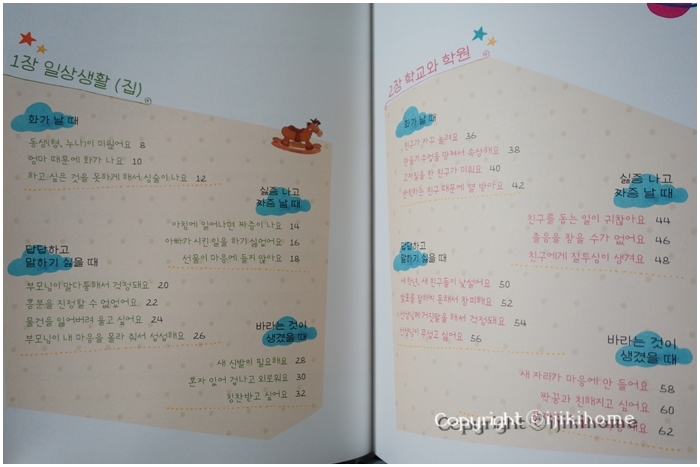 1장 일상생활 (집)
화가 날 때
동생(형, 누나)이 미워어요 8
엄마 때문에 화가 나요 10
하고 싶은 것을 못하게 해서 심술이 나요 12
싫증 나고
짜증 날 때
아침에 일어나면 짜증이 나요 14
아빠가 시킨 일을 하기 싫었어요 16
선물이 마음에 들지 않아요 18
답답하고
말하기 싫을 때
부모님이 말다툼해서 걱정돼요 20
흥분을 진정할 수 없었어요 22
물건을 잃어버려 울고 싶어요 24
부모님이 내 마음을 몰라 줘서 섭섭해요 26
바라는 것이
생겼을 때
새 신발이 필요해요 28
혼자 있어 겁나고 외로워요 30
칭찬받고 싶어요 32
2장 학교와 학원
화가 날 때
친구가 자꾸 놀려요 36
만들기 수업을 망쳐서 속상해요 38
고자질을 한 친구가 미워요 40
친구 때문에 열 받아요 42
싫증 나고
짜증 날 때
친구를 돕는 일이 귀찮아요 44
졸음을 참을 수가 없어요 46
친구에게 질투심이 생겨요 48
답답하고
말하기 싫을 때
새 학년, 새 친구들이 낯설어요 50
발표를 잘하지 못해서 창피해요 52
선생님께 거짓말을 해서 걱정돼요 54
선생님이 무섭고 싫어요 56
바라는 것이
생겼을 때
새 자리가 마음에 안 들어요 58
짝꿍과 친해지고 싶어요 60
해요 62
Copyright ⓒijikihome